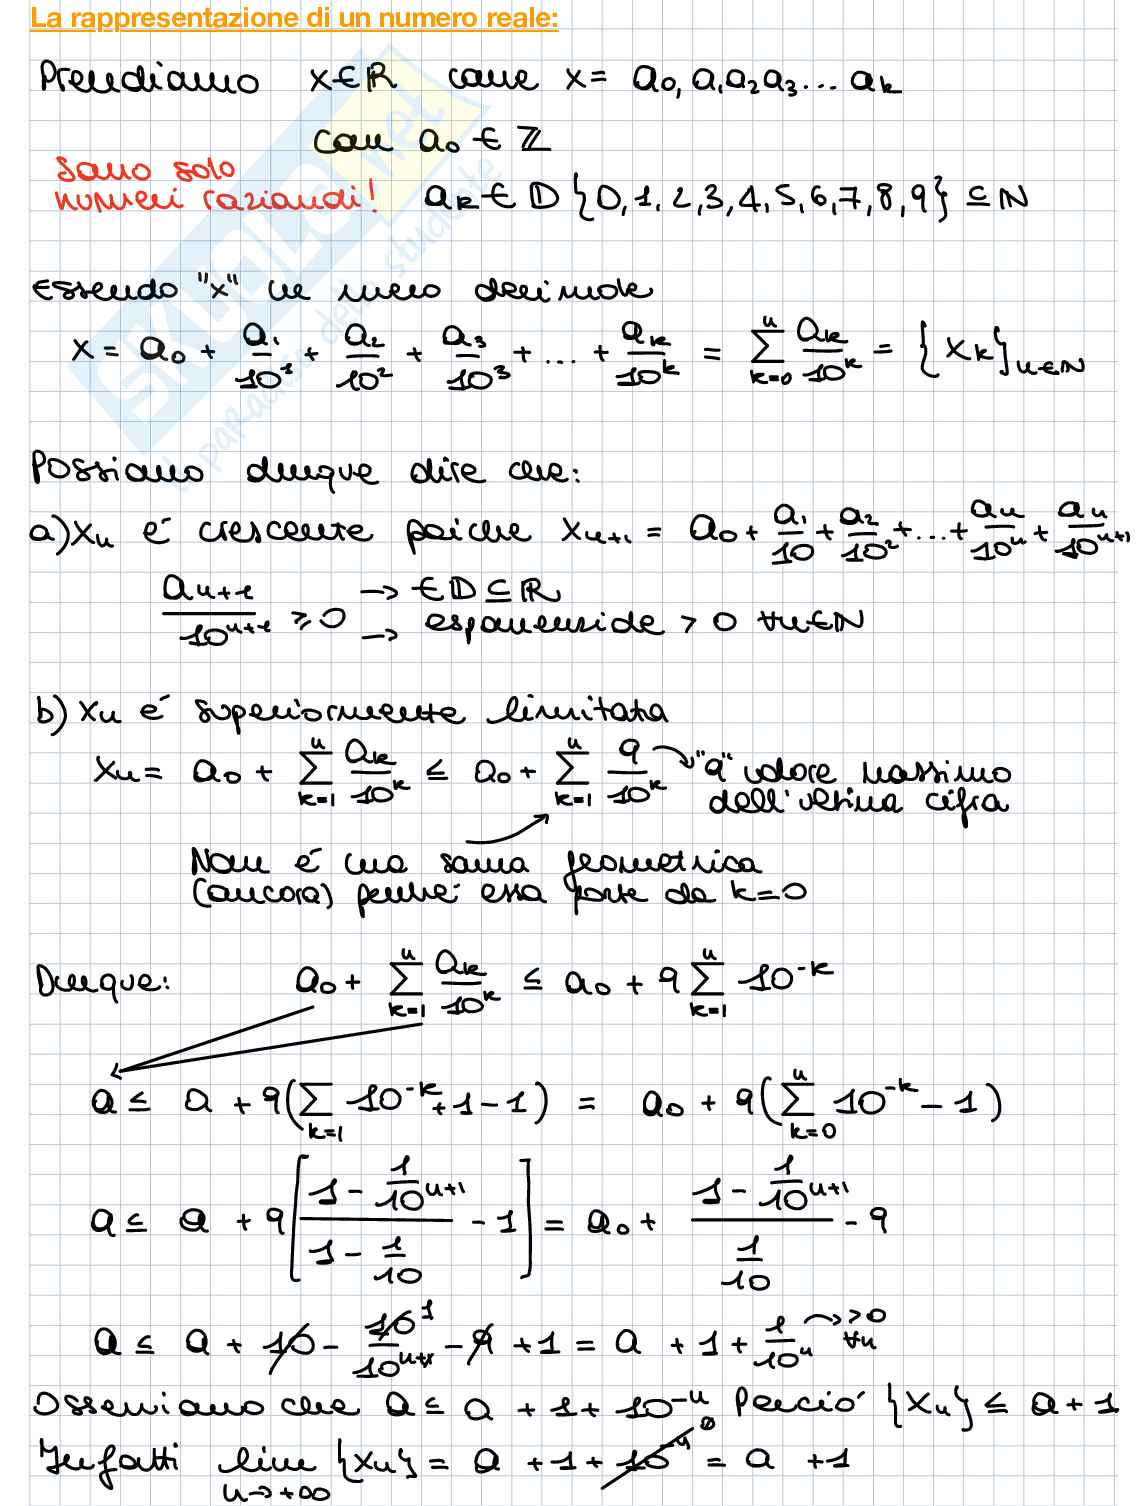 La rappresentazione di un numero reale:
Prendiamo x∈ℝ come x = a₀,a₁a₂a₃...aₖ
con a₀ ∈ ℤ
Sono solo
numeri razionali!
aₖ ∈ D {0,1,2,3,4,5,6,7,8,9} ⊆ ℕ
Essendo "x" un mero decimale
x = a₀ + a₁/10¹ + a₂/10² + a₃/10³ + ... + aₖ/10ᵏ = ∑ₖ₌₀ⁿ aₖ/10ᵏ = {xₖ}ₙ∈ℕ
Possiamo dunque dire che:
a) xₙ é crescente poiche xₙ₊₁ = a₀ + a₁/10 + a₂/10² + ... + aₙ/10ⁿ + aₙ/10ⁿ⁺¹
aₙ₊₁/10ⁿ⁺¹ ≥ 0 → ∈ D ⊆ ℝ
→ esponenziale > 0 ∀n∈ℕ
b) xₙ é superiormente limitata
xₙ = a₀ + ∑ₖ₌₁ⁿ aₖ/10ᵏ ≤ a₀ + ∑ₖ₌₁ⁿ 9/10ᵏ → "9" valore massimo
dell'ultima cifra
Non é una somma geometrica
(ancora) perché essa parte da k=0
Dunque: a₀ + ∑ₖ₌₁ⁿ aₖ/10ᵏ ≤ a₀ + 9 ∑ₖ₌₁ⁿ 10⁻ᵏ
a ≤ a + 9(∑ₖ₌₁ 10⁻ᵏ + 1 - 1) = a₀ + 9(∑ₖ₌₀ⁿ 10⁻ᵏ - 1)
a ≤ a + 9[(1 - 1/10ⁿ⁺¹)/(1 - 1/10) - 1] = a₀ + (1 - 1/10ⁿ⁺¹)/(1/10) - 9
a ≤ a + 10 - 10¹/10ⁿ⁺¹ - 9 + 1 = a + 1 + 1/10ⁿ → >0 ∀n
Osserviamo che a ≤ a + 1 + 10⁻ⁿ Perció {xₙ} ≤ a + 1
Infatti lim n→+∞ {xₙ} = a + 1 + 10⁻ⁿ ⁰ = a + 1
SKUOLA.net
il paradiso dello studente